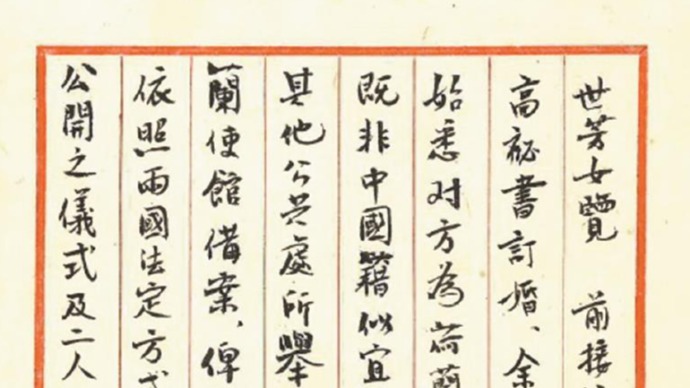 世芳女覽　前接
高秘書訂婚、余
始悉对方為荷蘭
既非中國籍似宜
其他公共處所舉
蘭使館備案、俾
依照兩國法定方式
公開之儀式及二人